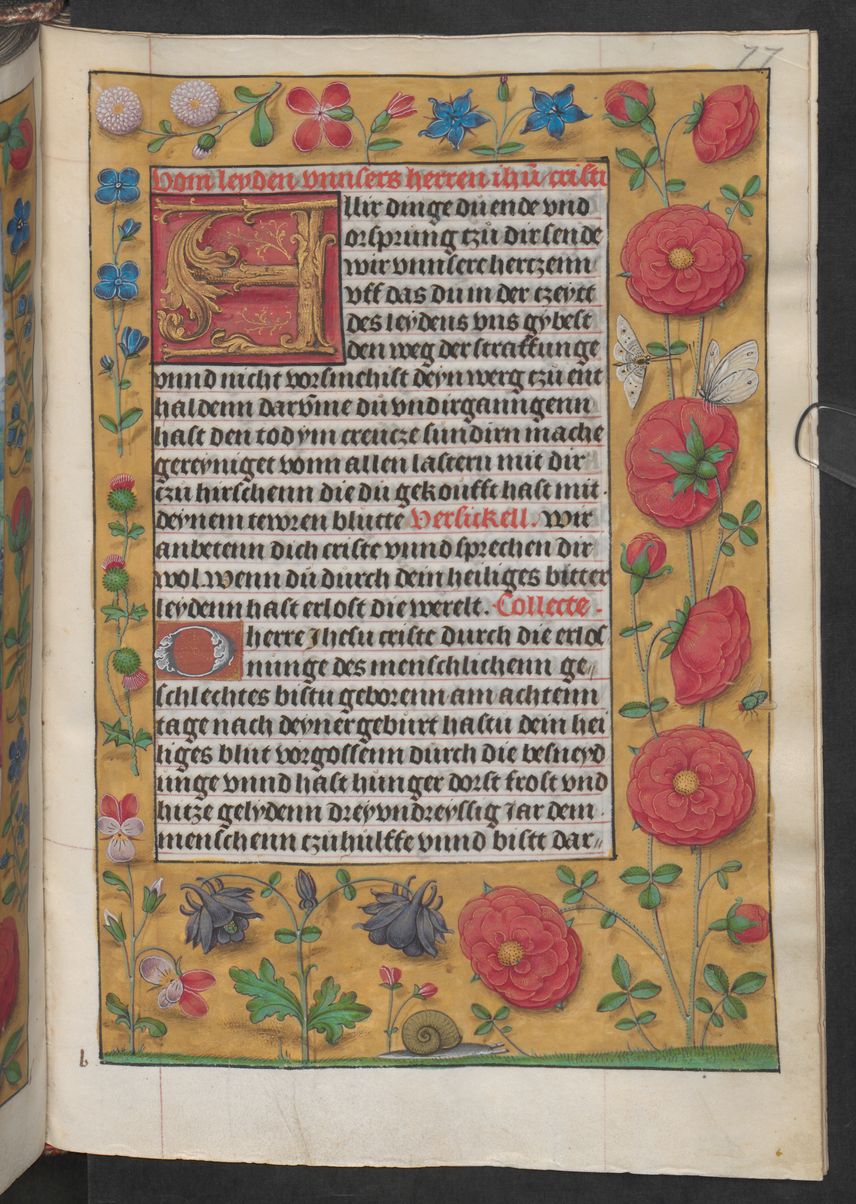 77
Vom leyden vnnsers herren ihū cristi
Allir dinge dü ende vnd
orsprüng tzü dir sende
wir vnnsere hertzenn
vff das dü in der tzeytt
des leydens vns gybest
den weg der straffunge
vnnd nicht vorsmehist deyn werg tzü ent
haldenn darv̄me dü vndirganngenn
hast den tod ym creutze sundirn mache
gereyniget vonn allen lastern mit dir
tzü hirschenn die dü gekoufft hast mit
deynem tewren blutte Versickell. Wir
anbetenn dich criste vnnd sprechen dir
wol. Wenn dü dürch dein heiliges bitter
leydenn hast erlost die werelt. Collecte.
O herre Jhesu criste dürch die erlos
nunge des menschlichenn ge„
schlechtes bistu geborenn am achtenn
tage nach deyner gebürt hastu dein hei
liges blüt vorgossenn dürch die besneyd
ünge vnnd hast hünger dorst frost vnd
hitze gelydenn dreyvndreyssig iar dem
menschenn tzuhülffe vnnd bist dar„
b